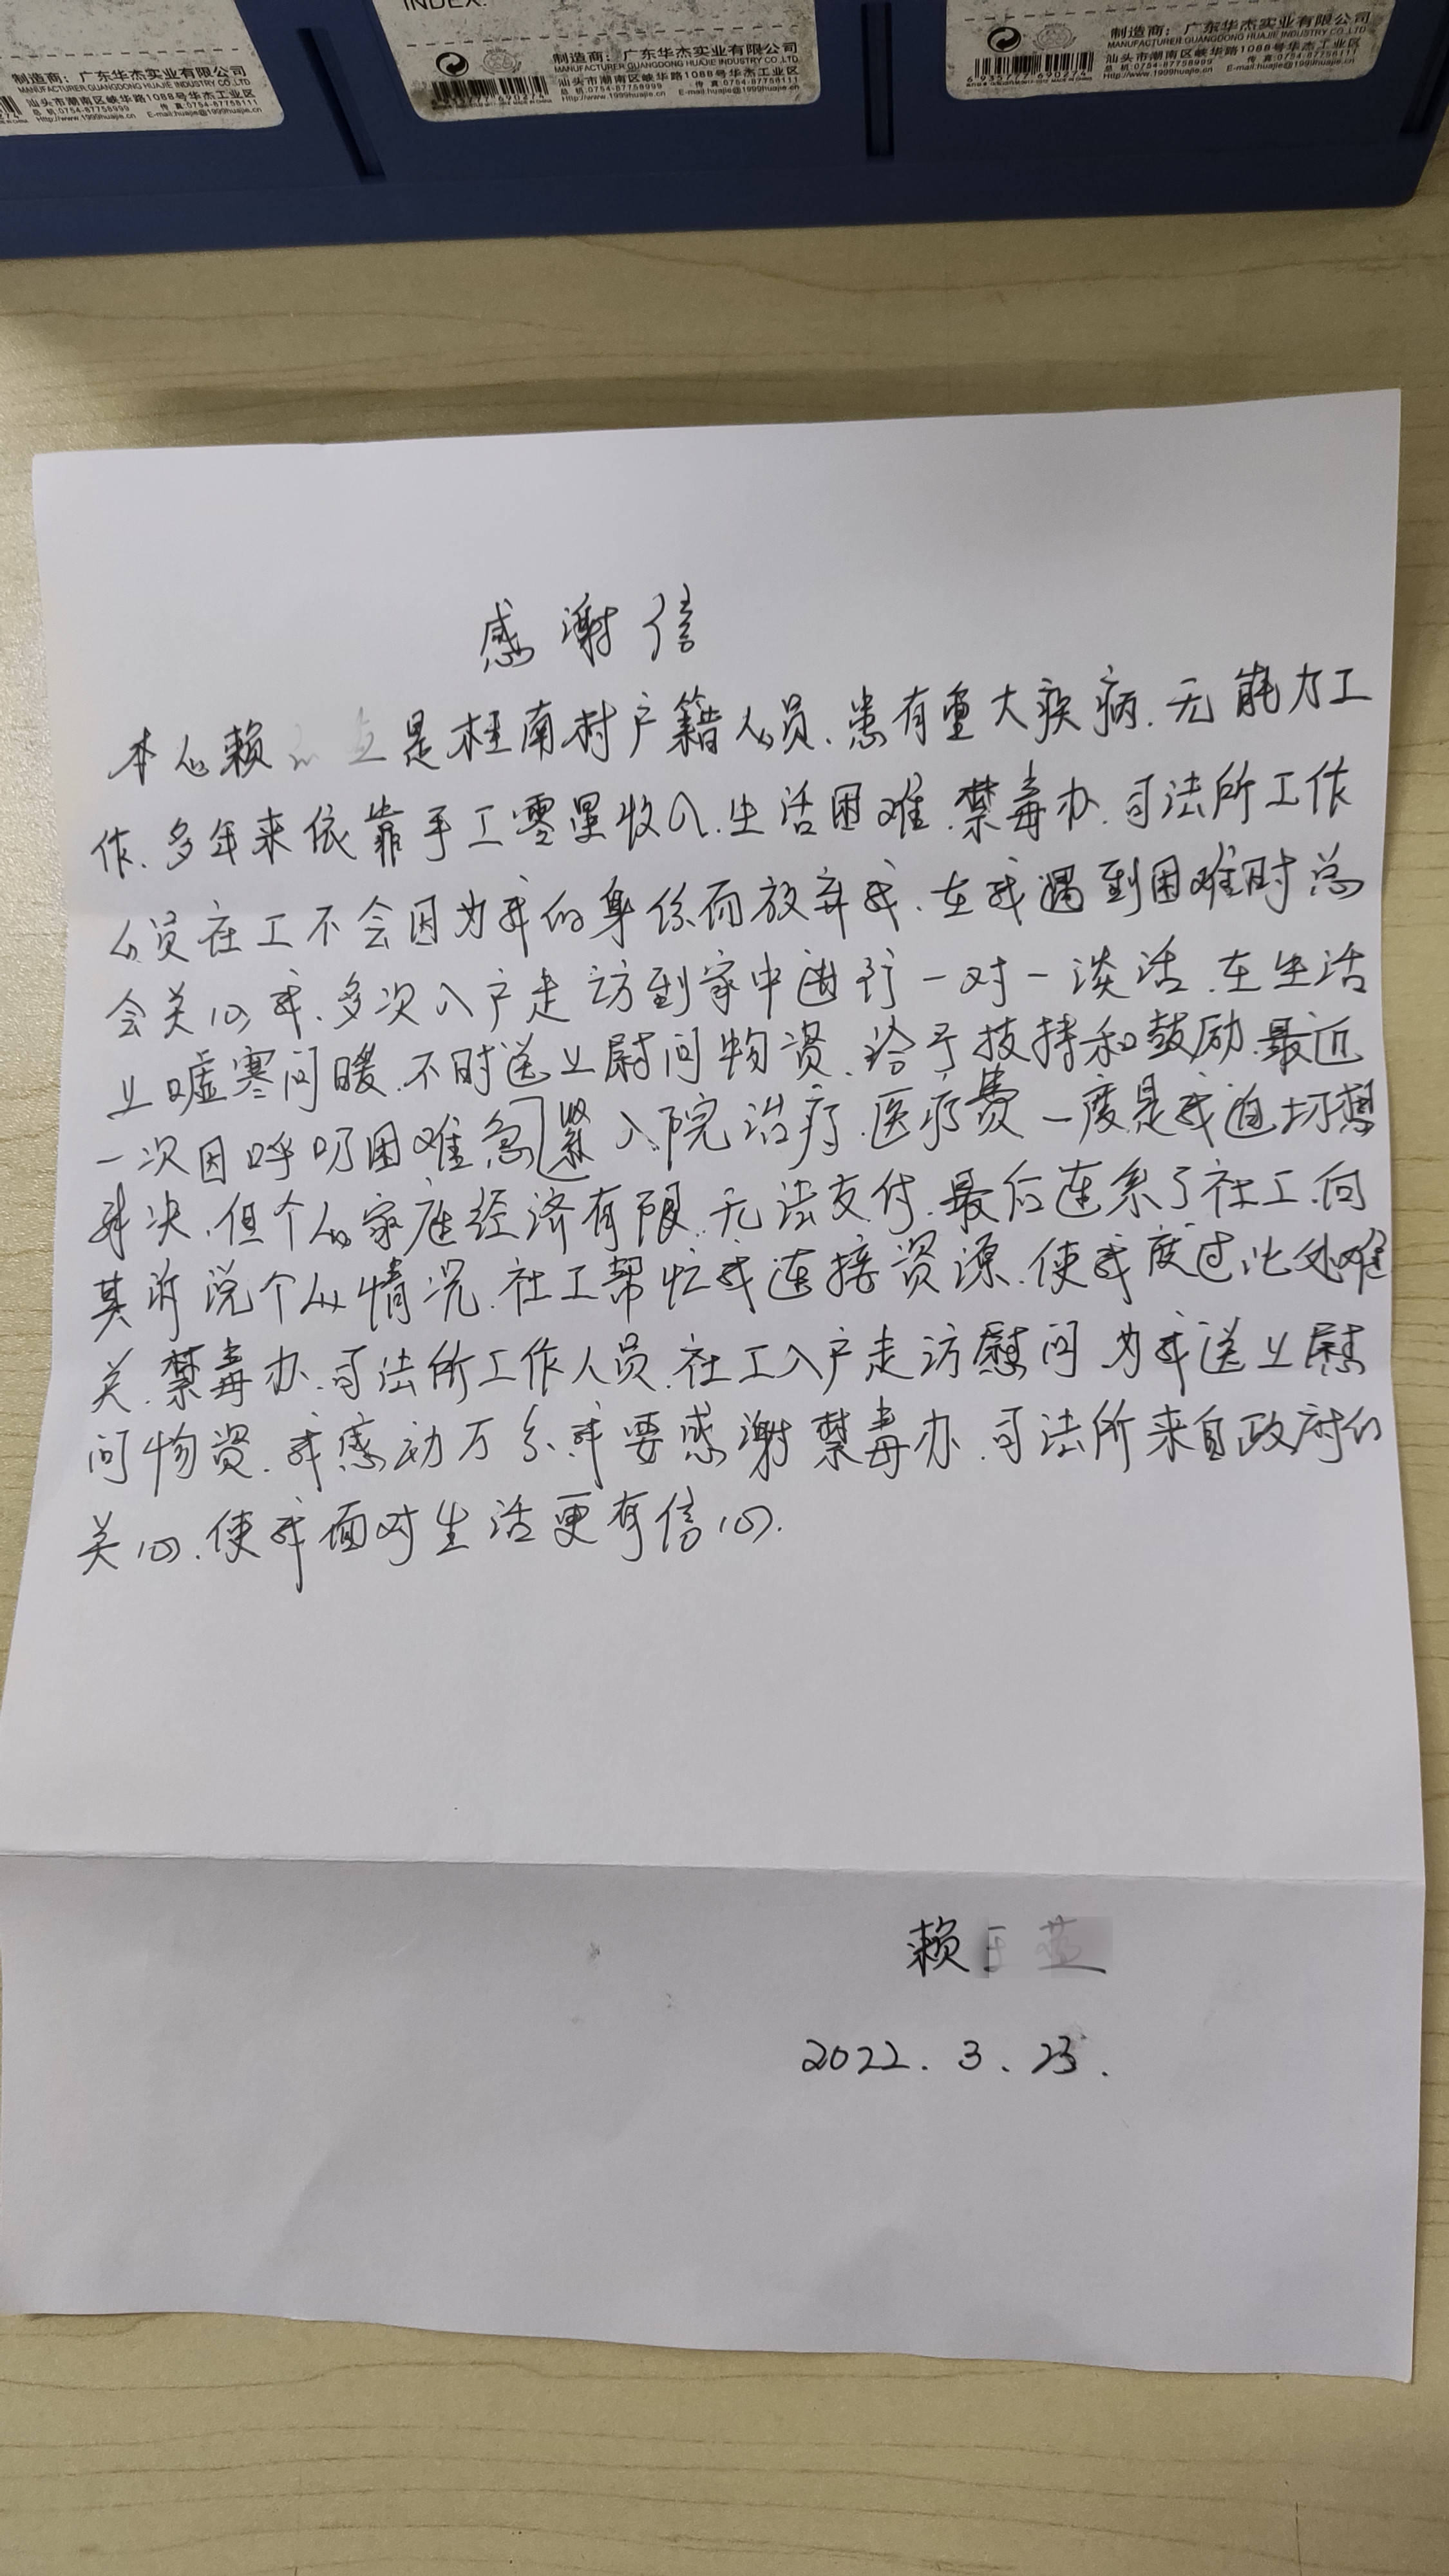 INDEX:
制造商：广东华杰实业有限公司
MANUFACTURER:GUANGDONG HUAJIE INDUSTRY CO.,LTD.
汕头市潮南区峡华路1088号华杰工业区
总机:0754-87758999 传真:0754-87758111
Http://www.1999huajie.cn E-mail:huajie@1999huajie.cn
制造商：广东华杰实业有限公司
MANUFACTURER:GUANGDONG HUAJIE INDUSTRY CO.,LTD.
汕头市潮南区峡华路1088号华杰工业区
总机:0754-87758999 传真:0754-87758111
Http://www.1999huajie.cn E-mail:huajie@1999huajie.cn
制造商：广东华杰实业有限公司
MANUFACTURER:GUANGDONG HUAJIE INDUSTRY CO.,LTD.
汕头市潮南区峡华路1088号华杰工业区
总机:0754-87758999 传真:0754-87758111
Http://www.1999huajie.cn E-mail:huajie@1999huajie.cn
6935777690274
感谢信
本人赖是桂南村户籍人员.患有重大疾病.无能力工
作.多年来依靠手工零星收入.生活困难.禁毒办.司法所工作
人员社工不会因为我的身份而放弃我.在我遇到困难时总
会关心我.多次入户走访到家中进行一对一谈话.在生活
上嘘寒问暖.不时送上慰问物资.给予扶持和鼓励.最近
一次因呼吸困难急紧入院治疗.医疗费一度是我迫切想
解决.但个人家庭经济有限.无法支付.最后连系了社工.向
其诉说个人情况.社工帮忙我连接资源.使我度过此处难
关.禁毒办.司法所工作人员.社工入户走访慰问为我送上慰
问物资.我感动万分.我要感谢禁毒办.司法所来自政府的
关心.使我面对生活更有信心.
赖
2022.3.23.